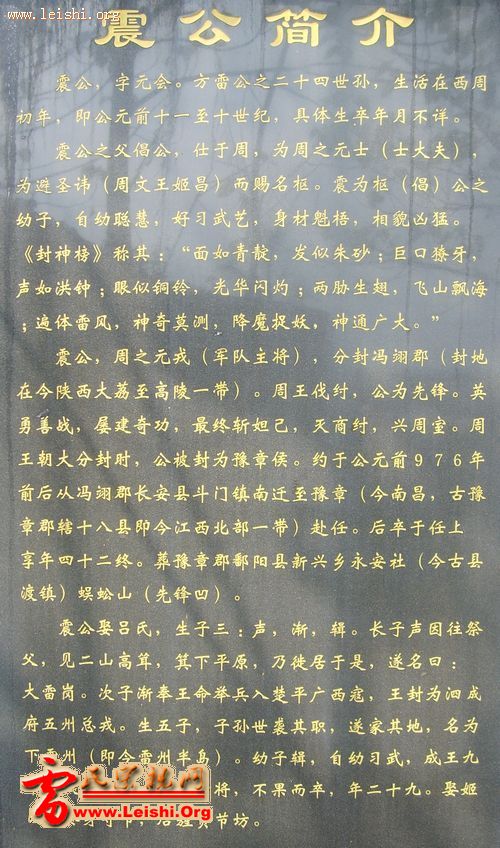 www.leishi.org
震公简介
震公，字元会。方雷公之二十四世孙，生活在西周
初年，即公元前十一至十世纪，具体生卒年月不详。
震公之父倡公，仕于周，为周之元士（士大夫），
为避圣讳（周文王姬昌）而赐名枢。震为枢（倡）公之
幼子，自幼聪慧，好习武艺，身材魁梧，相貌凶猛。
《封神榜》称其：“面如青靛，发似朱砂；巨口獠牙，
声如洪钟；眼似铜铃，光华闪灼；两肋生翅，飞山飘海
；遍体雷风，神奇莫测，降魔捉妖，神通广大。”
震公，周之元戎（军队主将），分封冯翊郡（封地
在今陕西大荔至高陵一带）。周王伐纣，公为先锋。英
勇善战，屡建奇功，最终斩妲己，灭商纣，兴周室。周
王朝大分封时，公被封为豫章侯。约于公元前976年
前后从冯翊郡长安县斗门镇南迁至豫章（今南昌，古豫
章郡辖十八县即今江西北部一带）赴任。后卒于任上
享年四十二终。葬豫章郡鄱阳县新兴乡永安社（今古县
渡镇）蜈蚣山（先锋凹）。
震公娶吕氏，生子三：声，渐，辑。长子声因往祭
父，见二山高耸，箕下平原，乃徙居于是，遂名曰：
大雷岗。次子渐奉王命举兵入楚平广西寇，王封为泗成
府五州总戎。生五子，子孙世袭其职，遂家其地，名为
下雷州（即今雷州半岛）。幼子辑，自幼习武，成王九
将，不果而卒，年二十九。娶姬
节坊。
雷氏宗族网
www.Leishi.Org